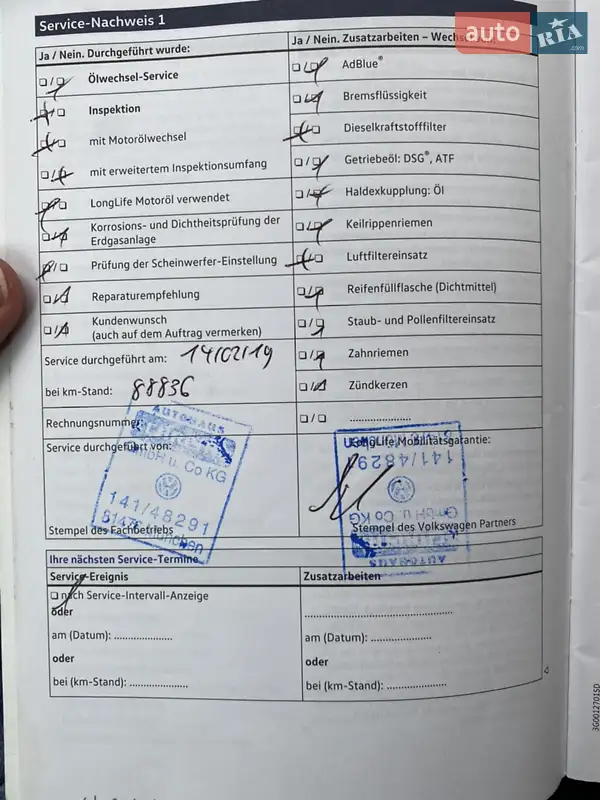 Service-Nachweis 1
auto RIA .com
Ja / Nein. Durchgeführt wurde:
Ölwechsel-Service
Inspektion
mit Motorölwechsel
mit erweitertem Inspektionsumfang
LongLife Motoröl verwendet
Korrosions- und Dichtheitsprüfung der
Erdgasanlage
Prüfung der Scheinwerfer-Einstellung
Reparaturempfehlung
Kundenwunsch
(auch auf dem Auftrag vermerken)
Service durchgeführt am: 14/02/19
bei km-Stand: 88836
Rechnungsnummer
Service durchgeführt von:
AUTOHAUS
GmbH u. Co KG
141/48291
81476 München
Stempel des Fachbetriebs
Ja / Nein. Zusatzarbeiten –
AdBlue®
Bremsflüssigkeit
Dieselkraftstofffilter
Getriebeöl: DSG®, ATF
Haldexkupplung: Öl
Keilrippenriemen
Luftfiltereinsatz
Reifenfüllflasche (Dichtmittel)
Staub- und Pollenfiltereinsatz
Zahnriemen
Zündkerzen
....................
LongLife Mobilitätsgarantie:
141/48291
GmbH u. Co KG
AUTOHAUS
Stempel des Volkswagen Partners
Ihre nächsten Service-Termine
Service-Ereignis
nach Service-Intervall-Anzeige
oder
am (Datum): ....................
oder
bei (km-Stand): ....................
Zusatzarbeiten
..................................................
am (Datum): ....................
oder
bei (km-Stand): ....................
3G0012701SD